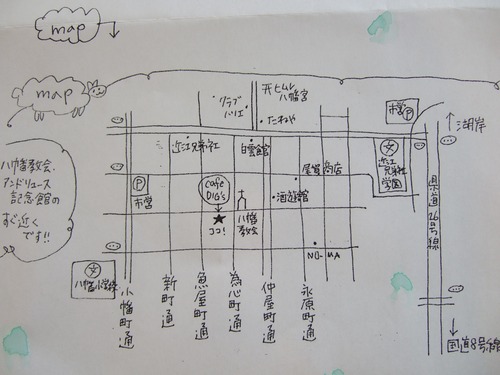 map
map
八幡教会.
アンドリュース
記念館の
すぐ近く
です!!
クラブ
ハリエ
ヒムレ
八幡宮
たねや
市営
P
↑湖岸
近江兄弟社
白雲館
尾賀商店
近江
兄弟社
学園
P
市営
cafe
DIG's
ココ!
八幡
教会
酒遊館
NO-MA
八幡小学校
小幡町通
新町通
魚屋町通
為心町通
仲屋町通
永原町通
県道26号線
国道8号線